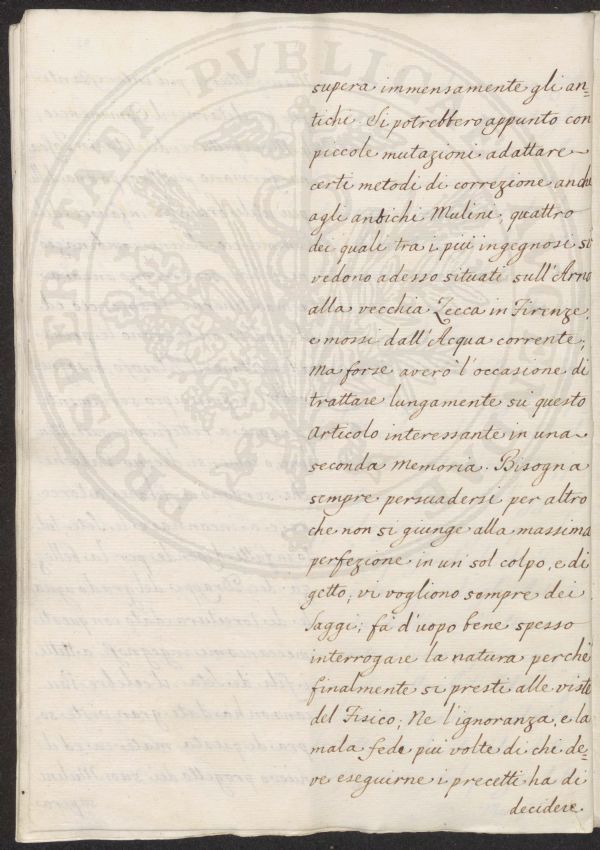 supera immensamente gli an=
tichi. Si potrebbero appunto con
piccole mutazioni adattare
certi metodi di correzione anche
agli antichi Mulini, quattro
dei quali tra i piu ingegnosi si
vedono adesso situati sull'Arno
alla vecchia Zecca in Firenze,
e mossi dall'Acqua corrente;
ma forse averò l'occasione di
trattare lungamente su questo
Articolo interessante in una
seconda Memoria. Bisogna
sempre persuadersi per altro
che non si giunge alla massima
perfezione in un sol colpo, e di
getto; vi vogliono sempre dei
Saggi; fà d'uopo bene spesso
interrogare la natura perchè
finalmente si presti alle viste
del Fisico; Ne l'ignoranza, e la
mala fede piu volte di chi de=
ve eseguirne i precetti ha di
decidere.
PROSPERITATI PUBLICAE AUGENDAE